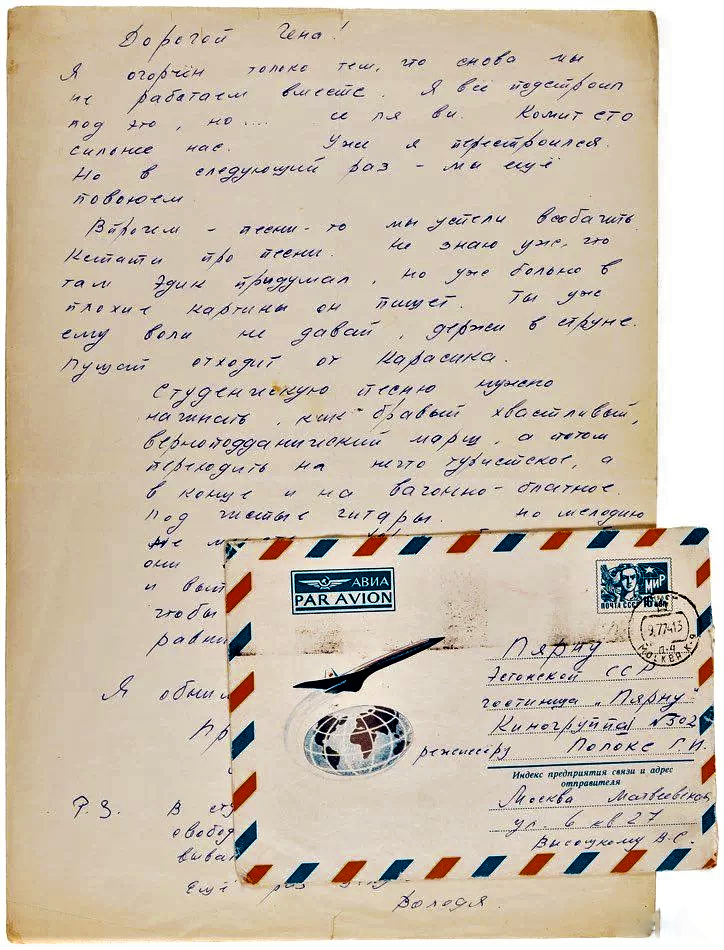 Дорогой Гена!
Я огорчён только тем, что снова мы
не работаем вместе. Я всё подстроил
под это, но... се ля ви. Комитето
сильнее нас. Уже я перестроился.
Но в следующий раз - мы ещё
повоюем.
Впрочем - песни-то мы успели всобачить.
Кстати про песни. Не знаю уж, что
там Эдик придумал, но уж больно в
плохие картины он пишет. Ты уж
ему воли не давай, держи в струне.
Пущай отходит от Карасика.
Студенческую песню нужно
начинать, как бравый хвастливый,
верноподданический марш, а потом
переходить на нечто туристское, а
в конце и на вагонно-блатное.
Под чистые гитары. Но мелодию
не
они
и
чтобы
Я
P.S. В
Ещё раз
Володя.
АВИА
PAR AVION
ПОЧТА СССР
МИР
МОСКВА
Пярну
Эстонской ССР
гостиница "Пярну"
Киногруппа №302
режиссёру Полоке Г.И.
Индекс предприятия связи и адрес
отправителя
Москва Матвеевская
ул 6 кв 27
Высоцкому В.С.